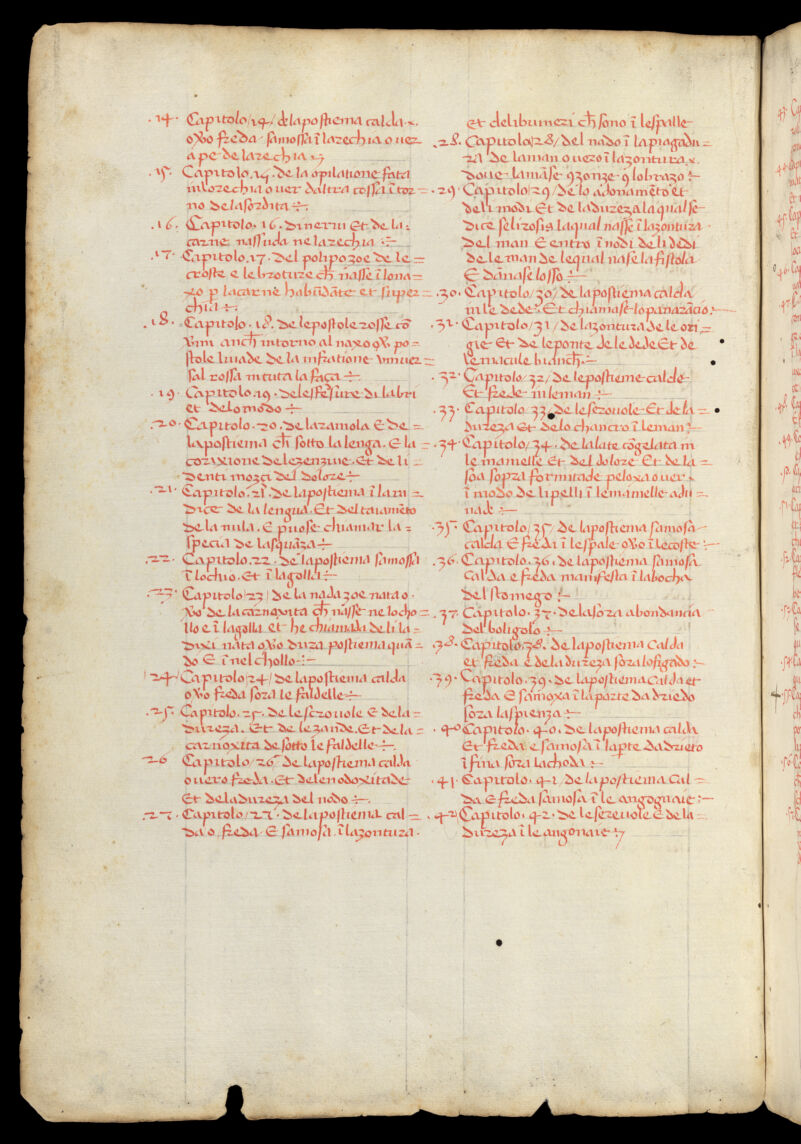 .14. Capitolo /14/ de la postiema calda .
ovvo freda . samossa ī larechia o uer
a pe de larechia .
.15. Capitolo .15. de la opilatione fata
in lorechia o uer daltra cossa ī tor =
no de la sordita ÷
.16. Capitolo . 16. di nerui Et de la :
carne nassuda ne larechia . ÷
.17. Capitolo .17. del polipo zoe de le =
croste e le broture ch̄ nasse ī lo na =
xo p la carne habūdāte et super =
chia ÷
.18. Capitolo . 18. de le postole rosse cō
anch̄ intorno al naxo po =
stole liuade de la infiatione vniuer =
sal rossa in tuta la faça ÷
.19. Capitolo .19. de le sfesure di labri
et del o modo ÷
.20. Capitolo . 20. de la ramola E de =
la postiema ch̄ sotto la lenga . E la =
coraxione de le zenziue . Et de li =
denti mozci del dolore ÷
.21. Capitolo . 21. de la postiema ī la ra =
dice de la lengua . Et del taiamēto
de la uula . E puose chiamar la =
specia de la squāza ÷
.22. Capitolo .22. de la postiema samossa
ī lochio . Et ī la golla ÷
.23. Capitolo /23/ de la nada zoe nata o .
vo de la carnoxita ch̄ nasse ne locho =
llo e ī la golla et he chiamada de li la =
dixi nata ovvo dura postiema quā =
do E ī nel chollo . ÷
/24/ Capitolo /24/ de la postiema calda
ovvo freda sora le faldelle ÷
.25. Capitolo .25. de le scrouole E de la =
dureza . Et . de le zande . Et de la =
carnoxita de sotto le faldelle ÷
.26 Capitolo /26 de la postiema calda
o uero freda . Et de le nodoxitade
Et de la dureza del nodo ÷
.27. Capitolo /27. de la postiema cal =
da o freda E samosa . ī la zontura .
et de li bumeri ch̄ sono ī le spalle
.28. Capitolo /28/ del nado ī la piagadu =
ra de la man o uero ī la zontura .
doue la māse 9zonze 9 lo brazo ÷
.29. Capitolo /29/ de lo adonamēto et
de li modi Et de la dureza la qual se
dice selirosia la qual nasse ī la zontura
del man E entro ī nodi de li dedi
de le man de le qual nase la fistola
E dānase losso ÷
.30. Capitolo /30/ de la postiema calda
in le dede . Et chiamase lo panarācio ÷
.31. Capitolo /31/ de la zontura de le ori =
gie Et de le ponte de le dede Et de
le macule bianch̄ ÷
.32. Capitolo /32/ de le postieme calde
Et frede in le man ÷
.33. Capitolo /33/ de le scrouole Et de la =
dureza Et de lo chancro ī le man ÷
.34. Capitolo /34. de la late cōgelata in
le mamelle Et del dolore Et de la =
soa sopra formitade peloxa o uer
ī modo de li pelli ī le mamelle adu =
nade ÷
.35. Capitolo /35. de la postiema samosa
calda E freda ī le spale ovvo ī le coste ÷
.36. Capitolo .36. de la postiema samosa
calda e freda manifesta ī la bocha
del stomego ÷
.37. Capitolo .37. de la sora abondancia
del boligolo ÷
.38. Capitolo /38. de la postiema calda
et freda e de la dureza sora lo figado ÷
.39. Capitolo .39. de la postiema calda et
freda E samoxa ī la parte da driedo
sora la spienza ÷
.40 Capitolo .40. de la postiema calda
Et freda e samosa ī la pte da drieto
ī fina sora la choda ÷
.41. Capitolo . 41/ de la postiema cal =
da E freda samosa ī le angognaie ÷
.42 Capitolo . 42. de le sereuole E de la =
dureza ī le angonaie ÷